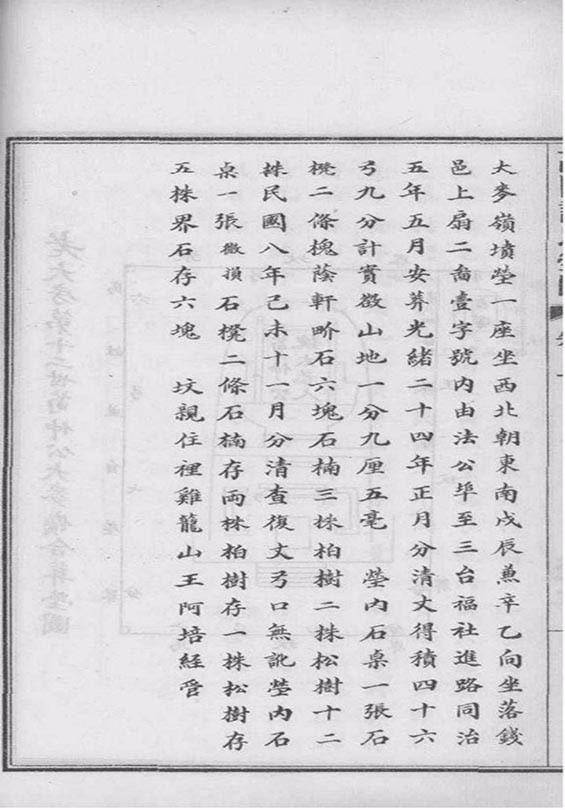 大麥嶺墳塋一座坐西北朝東南戌辰兼辛乙向坐落錢
邑上扇二畬壹字號內由法公埠至三台福社進路同治
五年五月安葬光緒二十四年正月分清丈得積四十六
弓九分計實徵山地一分九厘五毫　塋內石桌一張石
櫈二條槐蔭軒界石六塊石楠三株柏樹二株松樹十二
株民國八年己未十一月分清查復丈弓口無訛塋內石
桌一張微損石櫈二條石楠存兩株柏樹存一株松樹存
五株界石存六塊　坟親住裡雞龍山王阿培經管